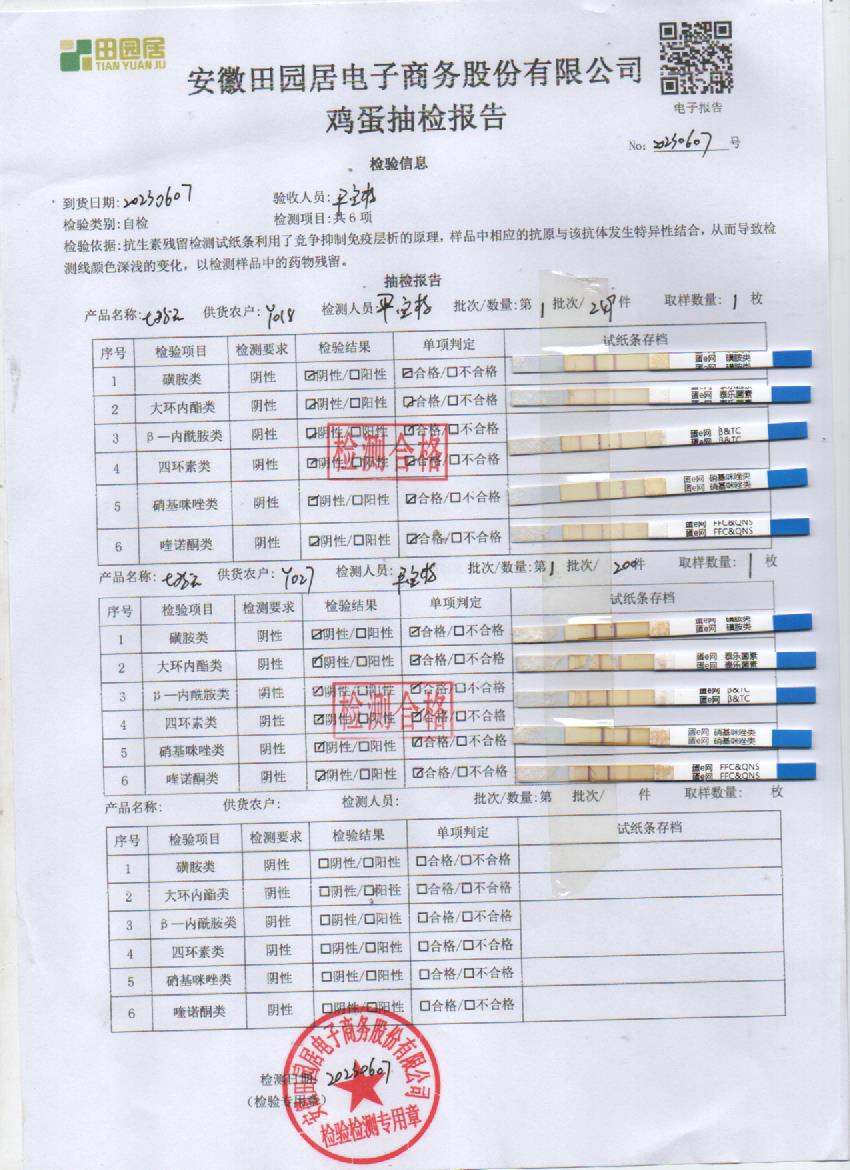 田园居
TIAN YUAN JU
安徽田园居电子商务股份有限公司
鸡蛋抽检报告
电子报告
No: 20230607 号
检验信息
到货日期: 20230607 验收人员:
检验类别: 自检 检测项目: 共6项
检验依据: 抗生素残留检测试纸条利用了竞争抑制免疫层析的原理，样品中相应的抗原与该抗体发生特异性结合，从而导致检
测线颜色深浅的变化，以检测样品中的药物残留。
抽检报告
产品名称: 供货农户: Y018 检测人员: 批次/数量: 第1批次/ 件 取样数量: 1 枚
序号 检验项目 检测要求 检验结果 单项判定 试纸条存档
1 磺胺类 阴性 ☑阴性/☐阳性 ☑合格/☐不合格 蛋e网 磺胺类
2 大环内酯类 阴性 ☑阴性/☐阳性 ☑合格/☐不合格 蛋e网 泰乐菌素
3 β—内酰胺类 阴性 ☑阴性/☐阳性 ☑合格/☐不合格 蛋e网 β&TC
4 四环素类 阴性 ☑阴性/☐阳性 ☑合格/☐不合格
5 硝基咪唑类 阴性 ☑阴性/☐阳性 ☑合格/☐不合格 蛋e网 硝基咪唑类
6 喹诺酮类 阴性 ☑阴性/☐阳性 ☑合格/☐不合格 蛋e网 FFC&QNS
检测合格
产品名称: 供货农户: Y027 检测人员: 批次/数量: 第1批次/ 200件 取样数量: 1 枚
序号 检验项目 检测要求 检验结果 单项判定 试纸条存档
1 磺胺类 阴性 ☑阴性/☐阳性 ☑合格/☐不合格 蛋e网 磺胺类
2 大环内酯类 阴性 ☑阴性/☐阳性 ☑合格/☐不合格 蛋e网 泰乐菌素
3 β—内酰胺类 阴性 ☑阴性/☐阳性 ☑合格/☐不合格 蛋e网 β&TC
4 四环素类 阴性 ☑阴性/☐阳性 ☑合格/☐不合格
5 硝基咪唑类 阴性 ☑阴性/☐阳性 ☑合格/☐不合格 蛋e网 硝基咪唑类
6 喹诺酮类 阴性 ☑阴性/☐阳性 ☑合格/☐不合格 蛋e网 FFC&QNS
检测合格
产品名称: 供货农户: 检测人员: 批次/数量: 第 批次/ 件 取样数量: 枚
序号 检验项目 检测要求 检验结果 单项判定 试纸条存档
1 磺胺类 阴性 ☐阴性/☐阳性 ☐合格/☐不合格
2 大环内酯类 阴性 ☐阴性/☐阳性 ☐合格/☐不合格
3 β—内酰胺类 阴性 ☐阴性/☐阳性 ☐合格/☐不合格
4 四环素类 阴性 ☐阴性/☐阳性 ☐合格/☐不合格
5 硝基咪唑类 阴性 ☐阴性/☐阳性 ☐合格/☐不合格
6 喹诺酮类 阴性 ☐阴性/☐阳性 ☐合格/☐不合格
检测日期: 20230607
（检验专用章）
安徽田园居电子商务股份有限公司
检验检测专用章